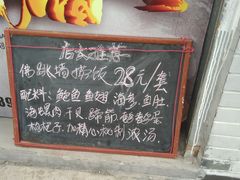 店家推荐
佛跳墙捞饭28元/套
配料: 鲍鱼 鱼翅 海参 鱼肚
海螺肉 干贝 蹄筋
枸杞子 加精心秘制浓汤